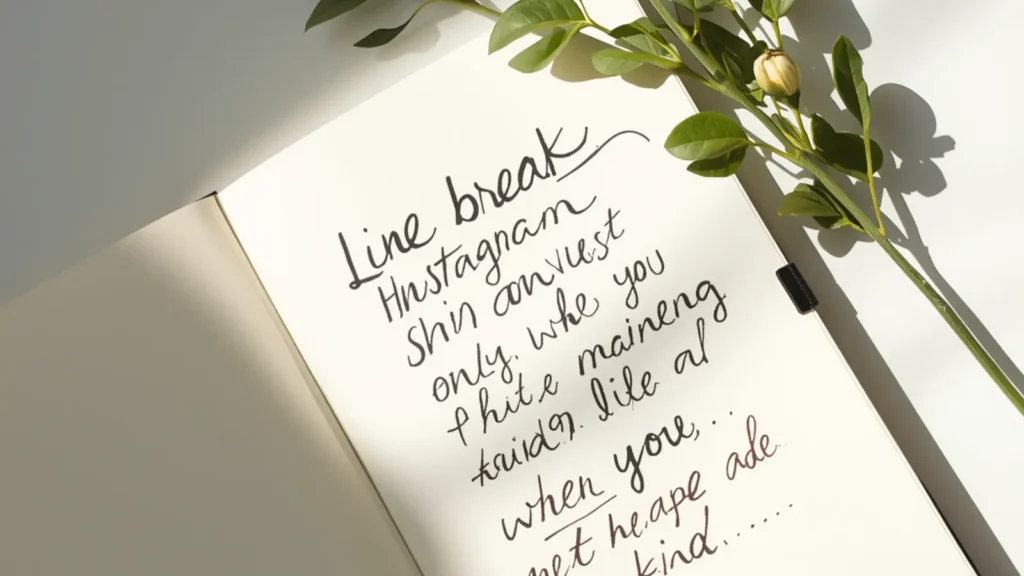 Line break
Hnstagram
shin convust
only. whe you
phite maineng
kuidn. lile al
when you,..
met he.ape ade
kind......